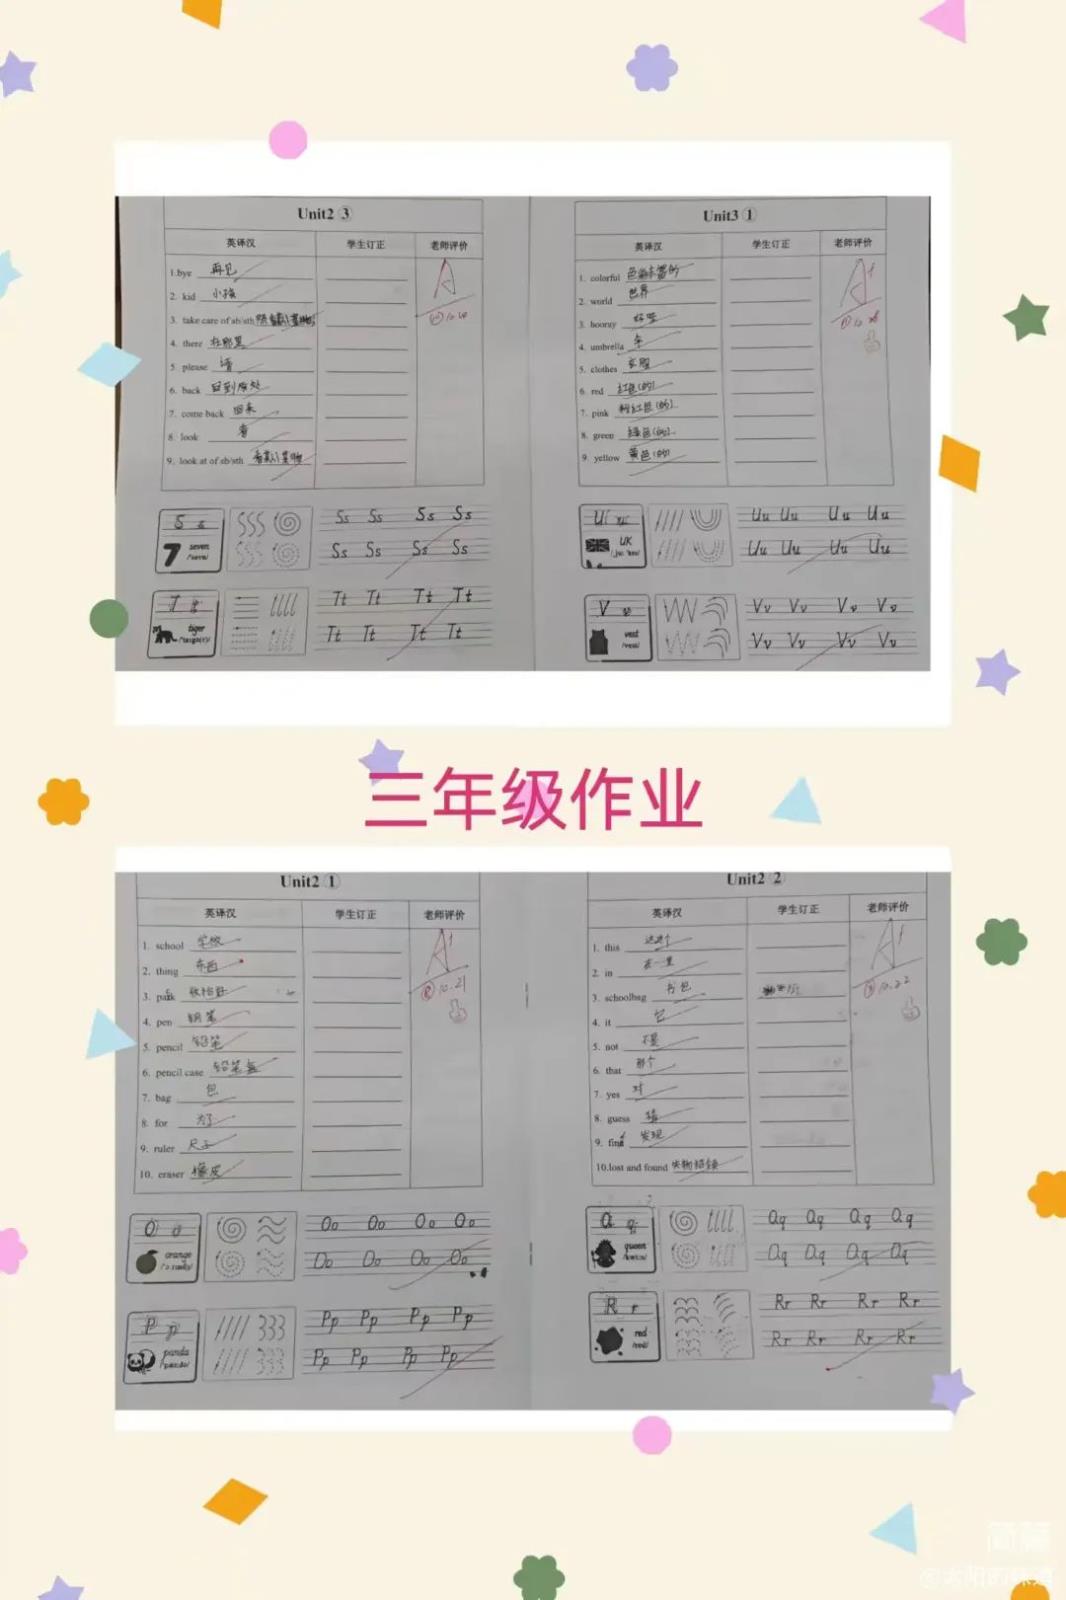 Unit2 ③
英译汉 学生订正 老师评价
1.bye 再见
2. kid 小孩
3. take care of sb/sth
4. there 在那里
5. please 请
6. back 回到原处
7. come back 回来
8. look 看
9. look at of sb/sth 看某人某物
A
S s
seven
Ss Ss Ss Ss
Ss Ss Ss Ss
T t
tiger
Tt Tt Tt Tt
Tt Tt Tt Tt
Unit3 ①
英译汉 学生订正 老师评价
1. colorful
2. world 世界
3. hooray 好哇
4. umbrella 伞
5. clothes 衣服
6. red 红色(的)
7. pink 粉红色(的)
8. green 绿色(的)
9. yellow 黄色(的)
A
Uu
UK
Uu Uu Uu Uu
Uu Uu Uu Uu
V v
vest
Vv Vv Vv Vv
Vv Vv Vv Vv
三年级作业
Unit2 ①
英译汉 学生订正 老师评价
1. school 学校
2. thing 东西
3.
4. pen 钢笔
5. pencil 铅笔
6. pencil case 铅笔盒
7. bag 包
8. for 为了
9. ruler 尺子
10. eraser 橡皮
A
10.21
O o
orange
Oo Oo Oo Oo
Oo Oo Oo Oo
P p
panda
Pp Pp Pp Pp
Pp Pp Pp Pp
Unit2 2
英译汉 学生订正 老师评价
1. this 这个
2. in
3. schoolbag 书包
4. it 它
5. not 不是
6. that 那个
7. yes 对
8. guess 猜
9. find 发现
10.lost and found 失物招领
A
10.22
Q q
queen
Qq Qq Qq Qq
Qq Qq Qq Qq
R r
red
Rr Rr Rr Rr
Rr Rr Rr Rr